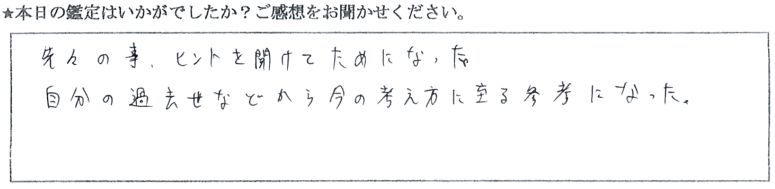 ★本日の鑑定はいかがでしたか？ご感想をお聞かせください。
先々の事、ヒントを聞けてためになった。
自分の過去世などから今の考え方に至る参考になった。